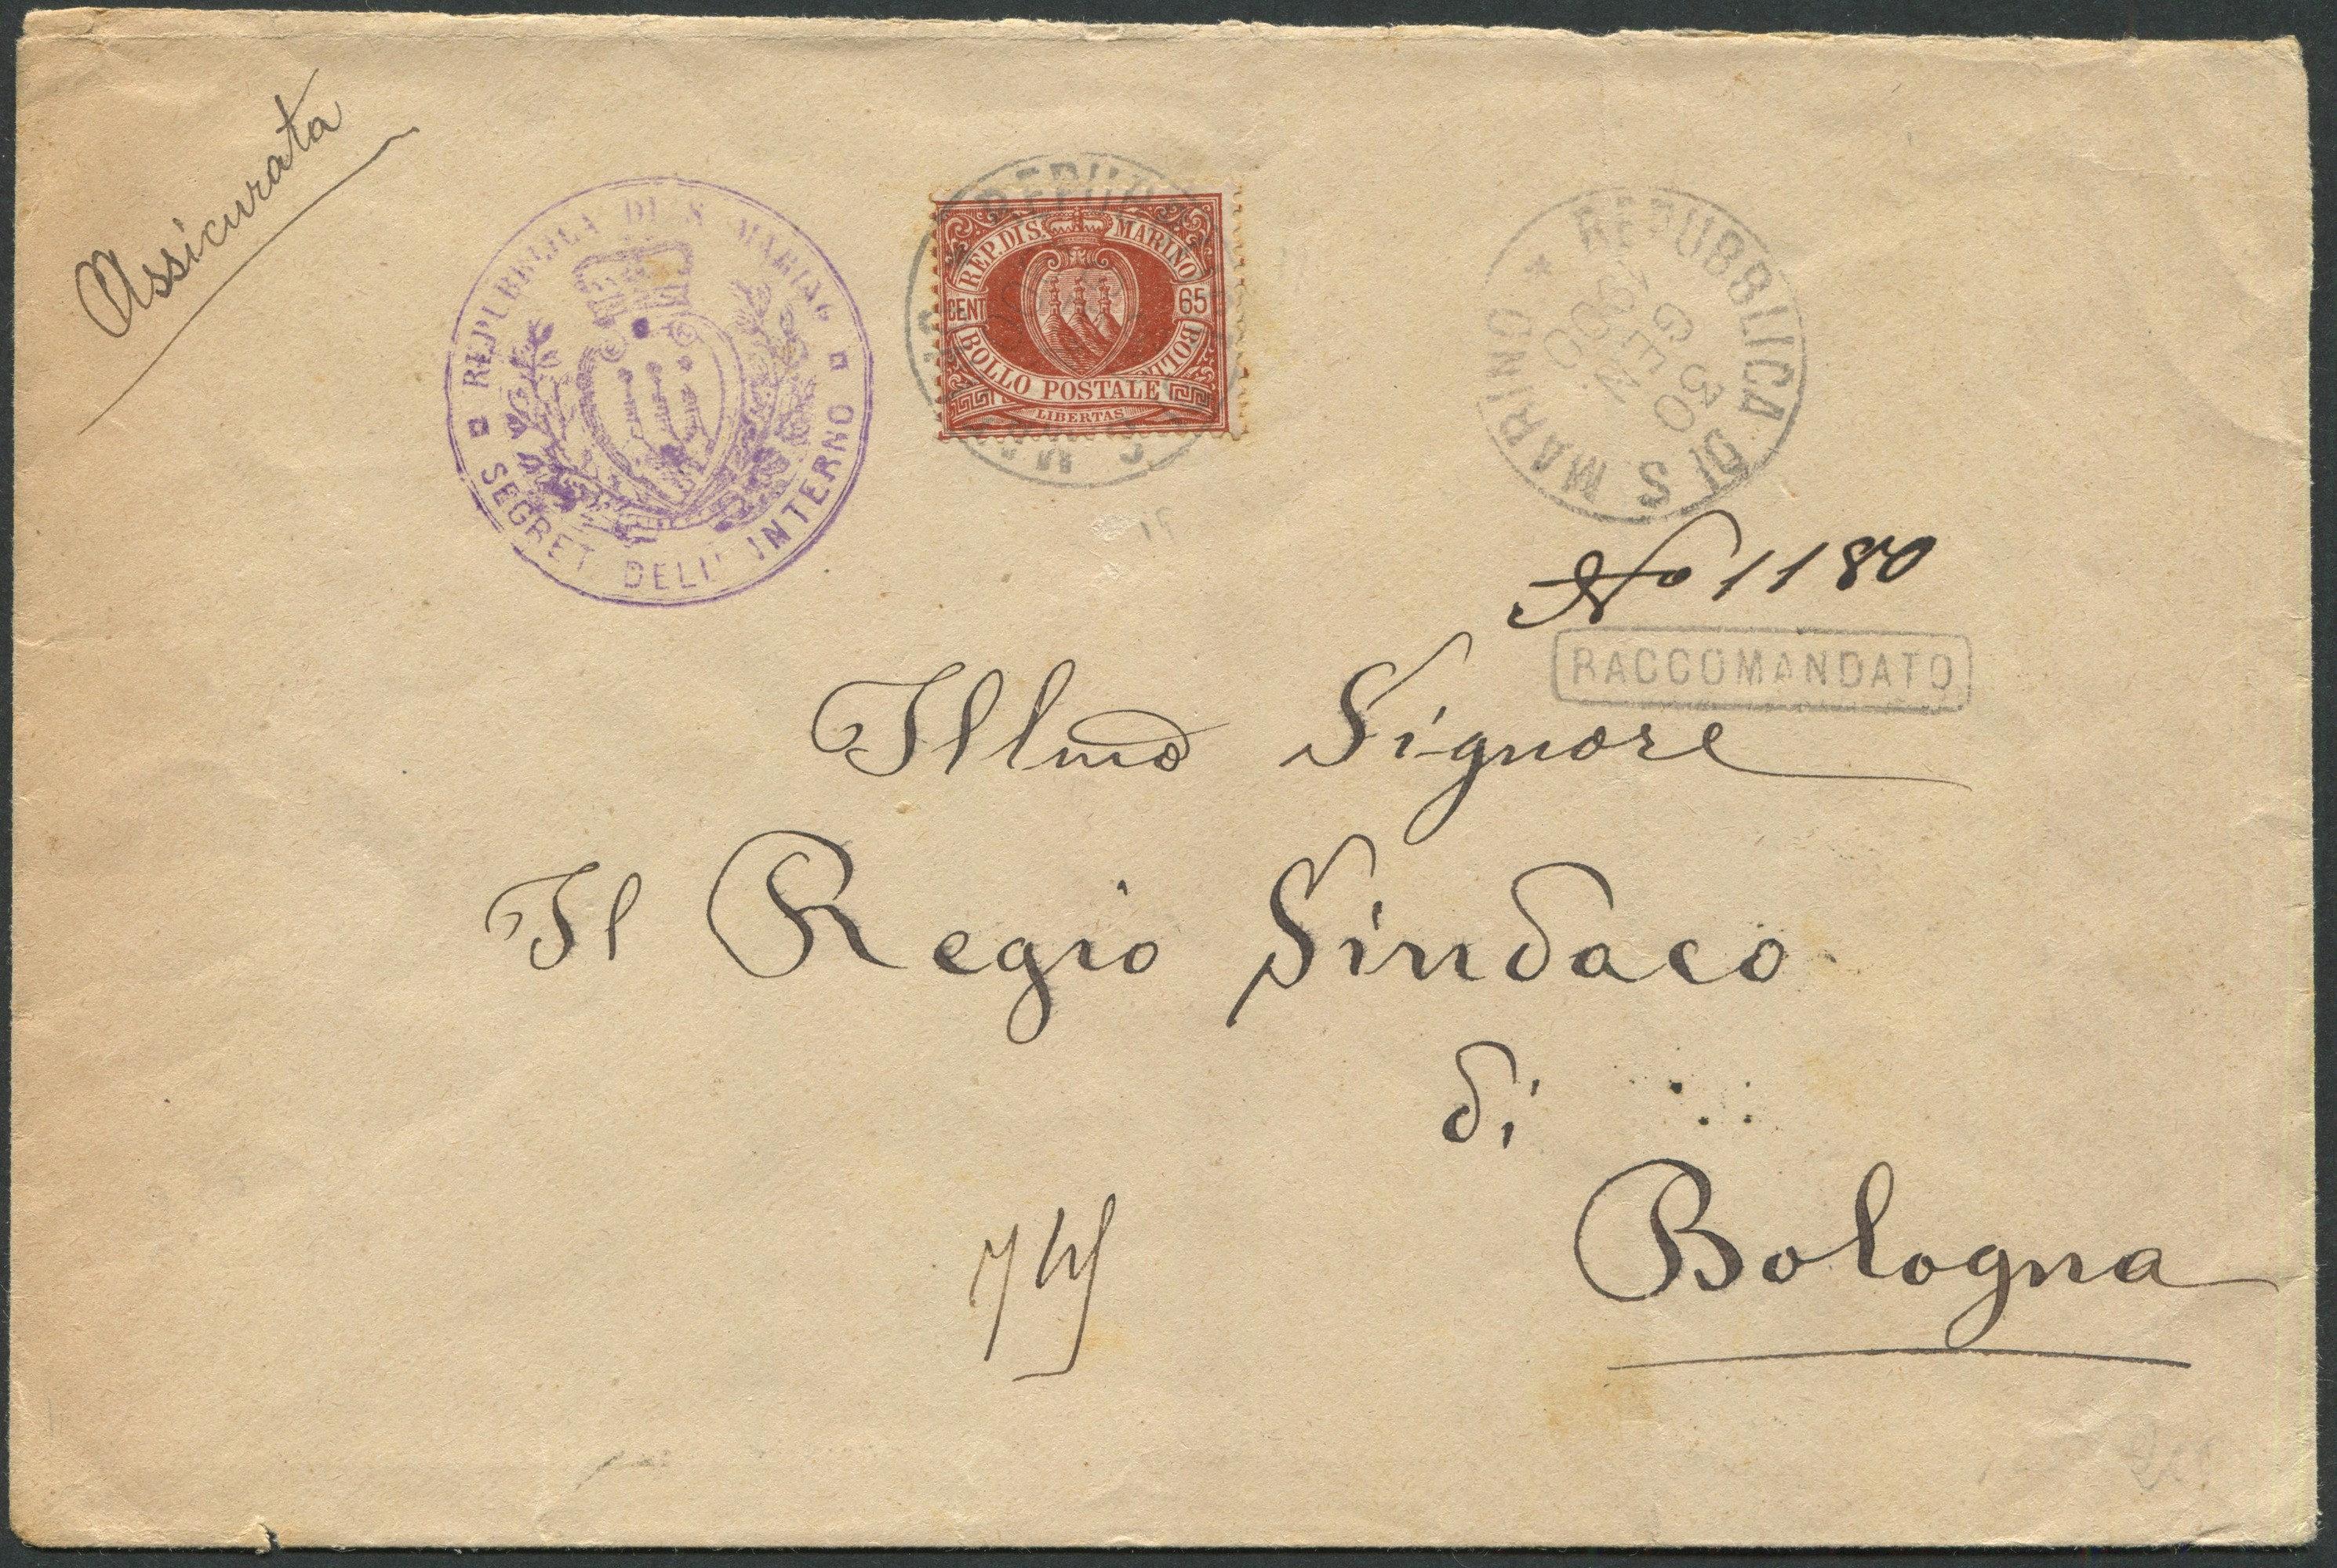 Assicurata
REPUBBLICA DI S. MARINO
SEGRET DELL' INTERNO
REP. DI S. MARINO
CENT 65
BOLLO POSTALE
LIBERTAS
REPUBBLICA DI S MARINO
30 GEN. 1900
No 1180
RACCOMANDATO
Illmo Signore
Il Regio Sindaco
di
Bologna